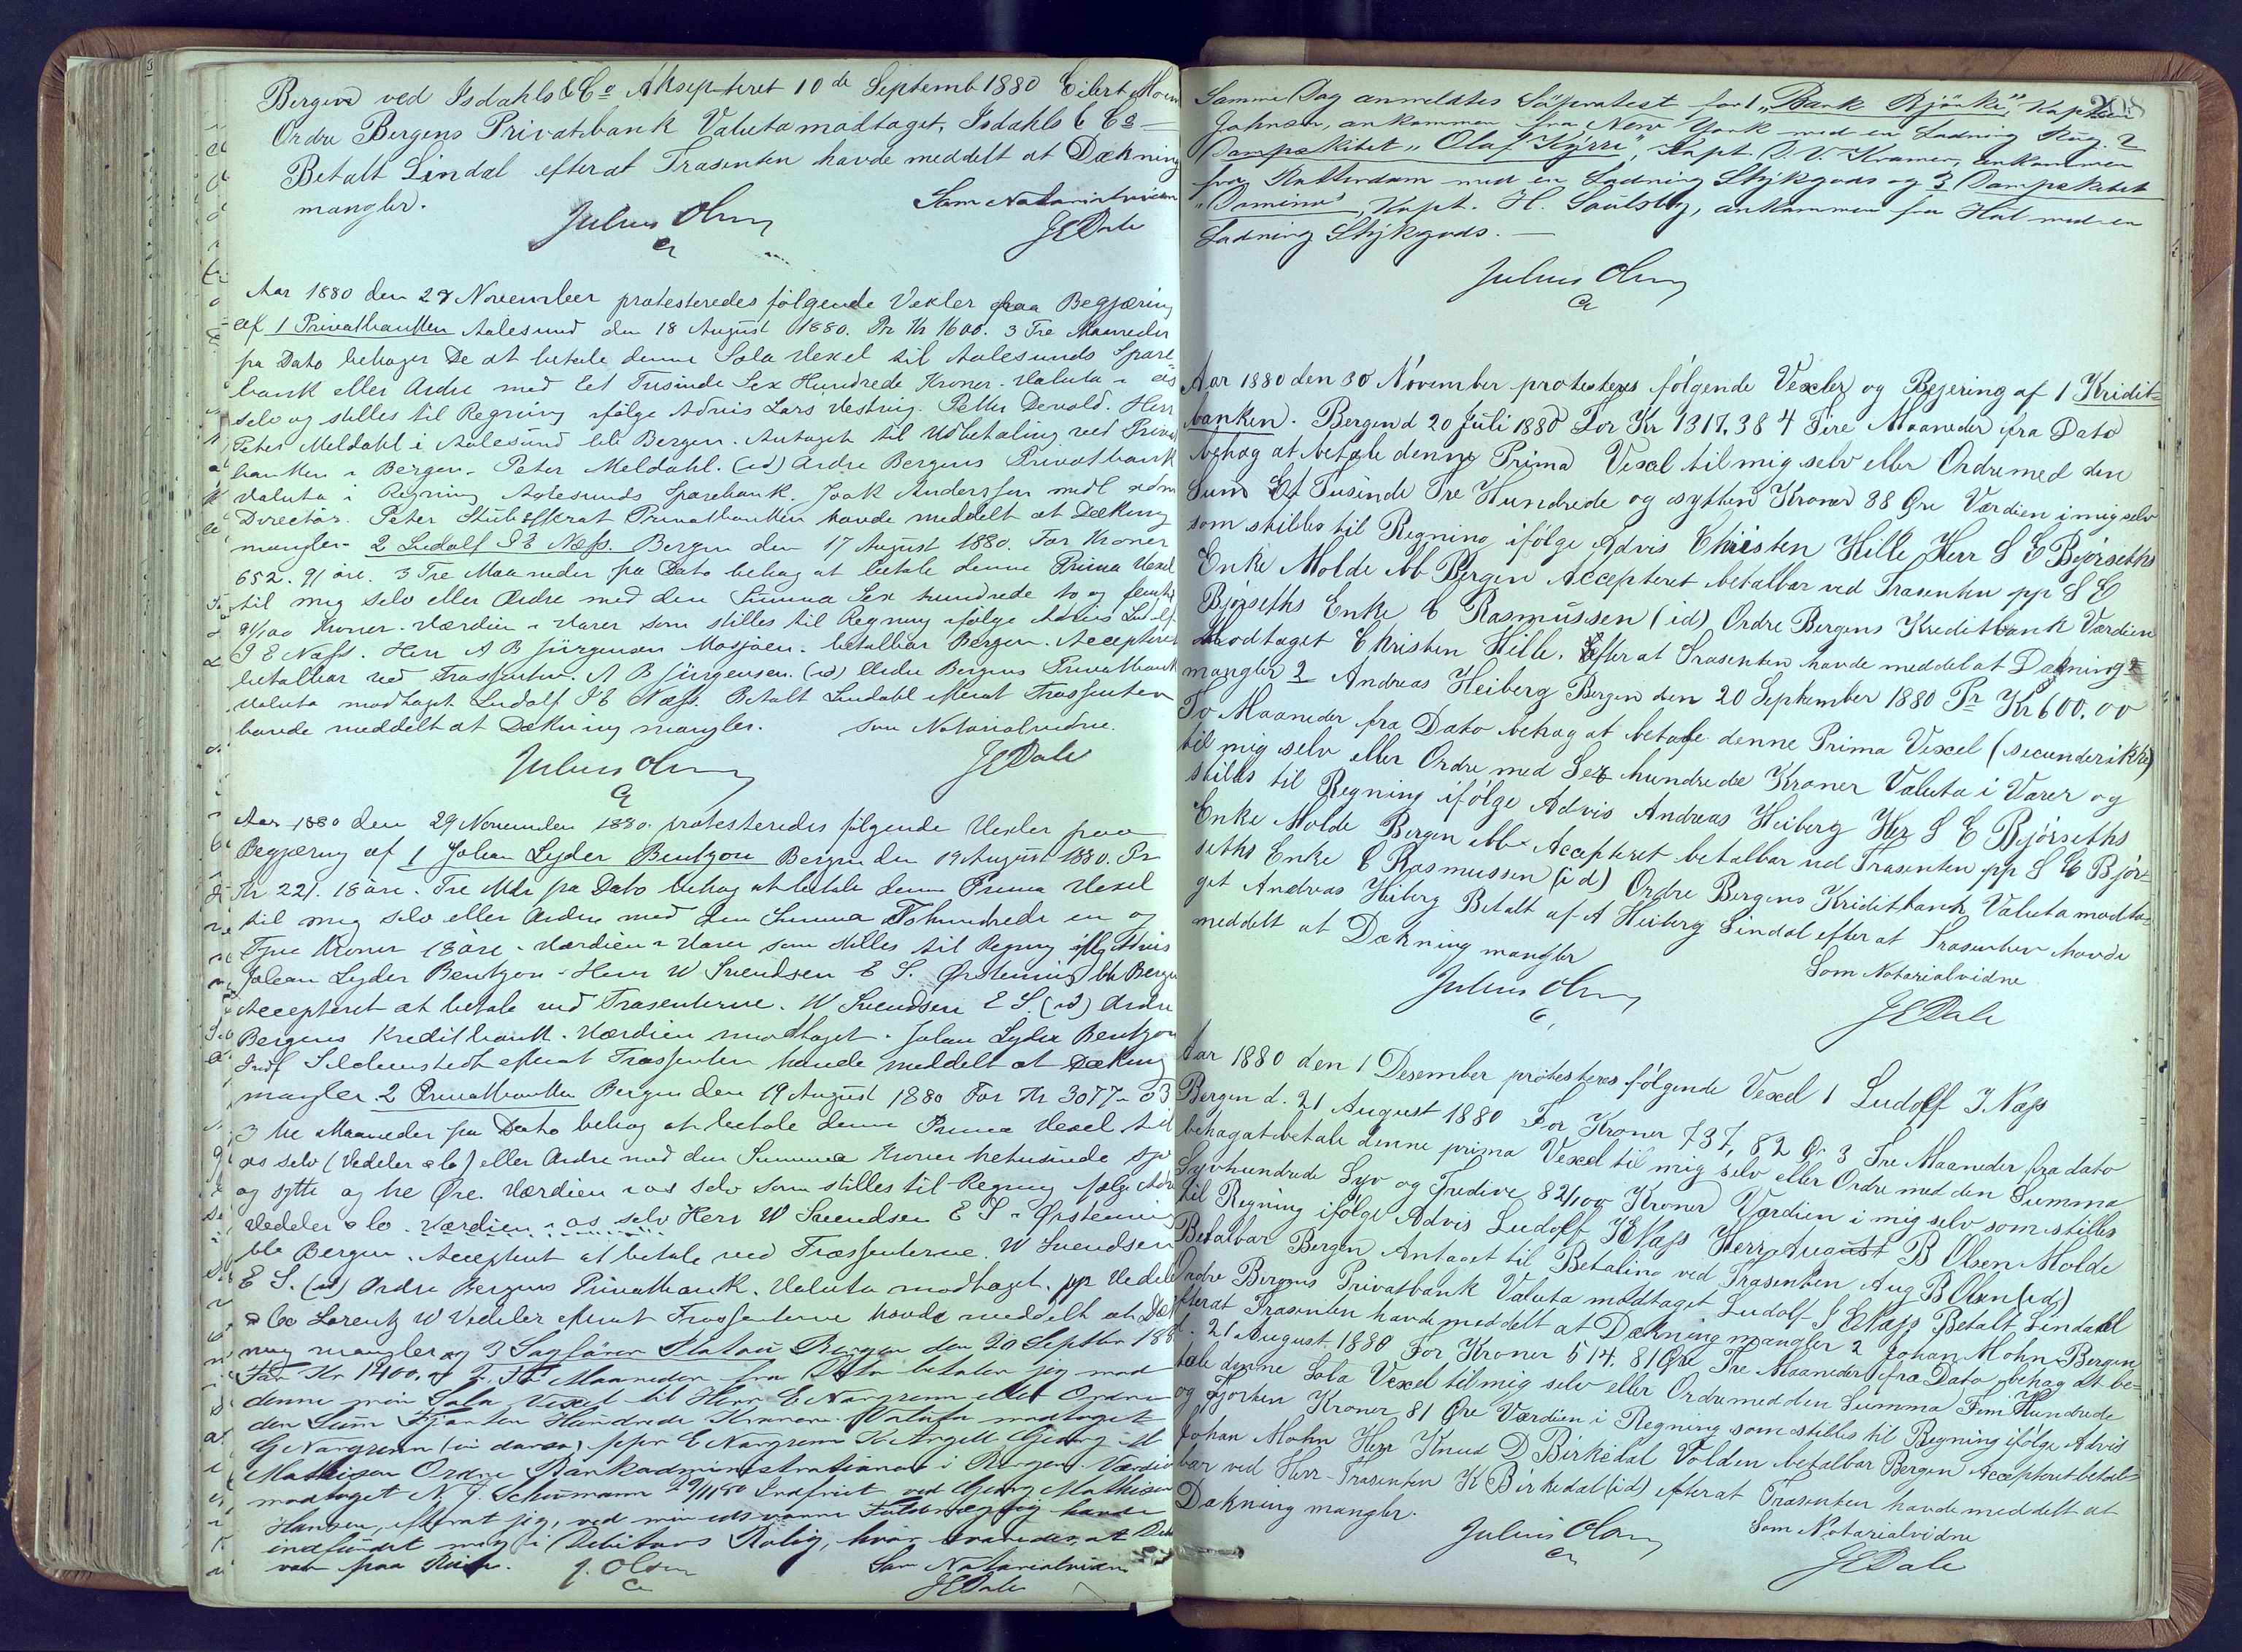 Bergen ved Isdahls & Co Aksepteret 10de Septemb 1880 Eilert Moen
Ordre Bergens Privatbank Valuta modtaget, Isdahls & Co —
Betalt Lindal efterat Trasenten havde meddelt at Dækning
mangler.
Som Notarialvidne
Julius Olsen
JEDale
Aar 1880 den 27 November protesteredes følgende Vexler paa Begjæring
af 1 Privatbanken Aalesund den 18 August 1880. Pr Kr 1600. 3 Tre Maaneder
pa Dato behager De at betale denne Sola Vexel til Aalesunds Spare-
bank eller Ordre med Eet Tusinde Sex Hundrede Kroner. Valuta i os
selv og stilles til Regning ifølge Advis Lars Vestring. Petter Devold. Herr
Peter Meldahl i Aalesund bb Bergen. Antaget til Udbetaling ved Privat
banken i Bergen. Peter Meldahl. (id) Ordre Bergens Privatbank
Valuta i Regning Aalesunds Sparebank. Jook Anderssen medl adm
Director. Peter Stub efterat Privatbanken havde meddelt at Dækning
mangler. 2 Ludolf I E Næss. Bergen den 17 August 1880. For Kroner
652. 91 øre. 3 Tre Maaneder pa Dato behag at betale denne Prima Vexel
til mig selv eller Ordre med den Summa Sex hundrede to og femti
91/100 Kroner. Værdien i Varer som stilles til Regning ifølge Advis Ludolf
I E Næss. Herr A B Jürgensen Mosjøen. betalbar Bergen. Accepteret
betalbar ved Trassenten. A B Jürgensen. (id) Ordre Bergens Privatbank
Valuta modtaget Ludolf I E Næss. Betalt Lindahl efterat Trassenten
havde meddelt at Dækning mangler. som Notarialvidne.
Julius Olsen
JEDale
Aar 1880 den 29 November 1880. protesteredes følgende Vexler paa
Begjæring af 1 Johan Lyder Bentzon Bergen den 19 August 1880. Pr
Kr 221. 18 øre. Tre Mdr pa Dato behag at betale denne Prima Vexel
til mig selv eller Ordre med den Summa Tohundrede en og
Tyve Kroner 18 øre. Værdien i Varer som stilles til Regning iflg Advis
Johan Lyder Bentzon. Herr W Svendsen E S. Ørstenvig bb Bergen
Accepteret at betale ved Trasenterne. W Svendsen E S. (id) Ordre
Bergens Kreditbank. Værdien modtaget. Johan Lyder Bentzon
Indf efterat Trassenten havde meddelt at Dækning
mangler. 2 Privatbanken Bergen den 19 August 1880 For Kr 3077- 03
3 tre Maaneder pa Dato behag at betale denne Prima Vexel til
os selv (Vedeler & Co) eller Ordre med den Summa Kroner tretusinde syv
og sytti og tre Øre. Værdien i os selv som stilles til Regning ifølge Advis
Vedeler & Co. Værdien i os selv Herr W Svendsen E S i Ørstenvig
bb Bergen. Accepteret at betale ved Trassenterne. W Svendsen
E S. (id) Ordre Bergens Privatbank. Valuta modtaget. pp Vedeler
& Co Lorentz W Vedeler efterat Trassenterne havde meddelt at Dæk
ning mangler og 3 Sagfører Platou Bergen den 20 Septbr 188
For Kr 1400, 2. To Maaneder fra Dato betaler jeg mod
denne min Sola Vexel til Herr E Norgrenn eller Ordre
den Sum Fjorten Hundrede Kroner. Valuta modtaget
G Norgrenn (in dorso) ppr E Norgrenn K Angell Georg M
Mathisen Ordre Bankadministrationen i Bergen. Værdien
modtaget N. J. Schumann 29/11 80 Indfriet ved Georg Mathisen
Hansen, efterat jeg, ved min edsvorne Fuldmægtig havde
indfundet mig i Debitors Bolig, hvor svaredes, at Deb
var paa Reise.
J. Olsen
Som Notarialvidne
JEDale
208
Samme Dag anmeldtes Søprotest for 1 „Bark Bjørke", Kaptein
Johnsen, ankommen fra New York med en Ladning Rug. 2
Dampskibet „Olaf Kyrre", Kapt. D. V. Kramer, ankommen
fra Rotterdam med en Ladning Stykgods og 3 Dampskibet
„Domino", Kapt. H. Soulsby, ankommen fra Hul med en
Ladning Stykgods. —
Julius Olsen
Aar 1880 den 30 November protesteres følgende Vexler og Begjering af 1 Kridit-
banken. Bergen d 20 Juli 1880 For Kr 1317.38 4 Fire Maaneder fra Dato
behag at betale denne Prima Vexel til mig selv eller Ordre med den
Sum Et Tusinde Tre Hundrede og sytten Kroner 38 Øre Værdien i mig selv
som stilles til Regning ifølge Advis Christen Hille Herr S E Bjørseths
Enke Molde bb Bergen Accepteret betalbar ved Trasenten pp S E
Bjørseths Enke C Rasmussen (id) Ordre Bergens Kreditbank Værdien
Modtaget Christen Hille. Efterat Trasenten havde meddelt at Dækning
mangler 2 Andreas Heiberg Bergen den 20 September 1880 Pr Kr 600.00
To Maaneder fra Dato behag at betale denne Prima Vexel (secunder ikke)
til mig selv eller Ordre med Sex hundrede Kroner Valuta i Varer og
stilles til Regning ifølge Advis Andreas Heiberg Her S E Bjørseths
Enke Molde Bergen bb Accepteret betalbar ved Trasenten pp S E Bjør-
seths Enke C Rasmussen (id) Ordre Bergens Kriditbank Valuta modta-
get Andreas Heiberg Betalt af A Heiberg Lindal efter at Trasenten havde
meddelt at Dækning mangler
Som Notarialvidne
Julius Olsen
JEDale
Aar 1880 den 1 Desember protesteres følgende Vexel 1 Ludolf I Næss
Bergen d. 21 August 1880 For Kroner 737, 82 Ør 3 Tre Maaneder fra dato
behag at betale denne prima Vexel til mig selv eller Ordre med den Summa
Syvhundrede Syv og Tredive 82/100 Kroner Værdien i mig selv som stilles
til Regning ifølge Advis Ludolf I E Næss Herr August B Olsen Molde
Betalbar Bergen Antaget til Betaling ved Trasenten Aug B Olsen (id)
Ordre Bergens Privatbank Valuta modtaget Ludolf I E Næss Betalt Lindahl
efterat Trasenten havde meddelt at Dækning mangler 2 Johan Mohn Bergen
d. 21 August 1880 For Kroner 514. 81 Øre Tre Maaneder fra Dato behag at be-
tale denne Sola Vexel til mig selv eller Ordre med den Summa Fem Hundrede
og Fjorten Kroner 81 Øre Værdien i Regning som stilles til Regning ifølge Advis
Johan Mohn Herr Knud D Birkedal Volden betalbar Bergen Accepteret betal-
bar ved Herr Trasenten K Birkedal (id) efterat Trasenten havde meddelt at
Dækning mangler.
Som Notarialvidne
Julius Olsen
JEDale